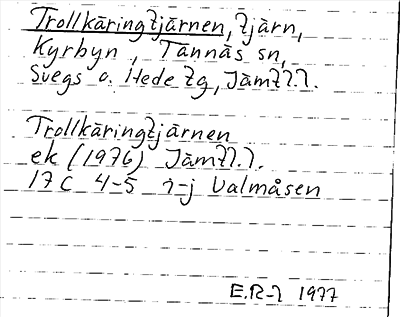 Trollkäringtjärnen, tjärn,
Kyrbyn, Tännäs sn,
Svegs o. Hede tg, Jämtl l.
Trollkäringtjärnen
ek (1976) Jämtl. l.
17 C 4-5 i-j Valmåsen
E.R-l 1977